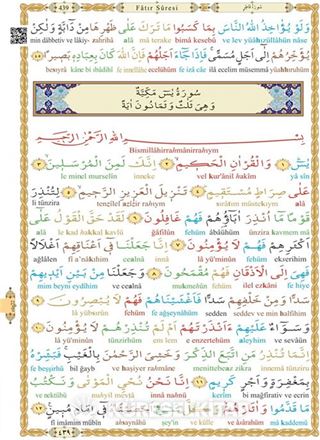 ٤٣٩ Fâtır Sûresi سورة فاطر
وَلَوْ يُؤَاخِذُ اللّٰهُ النَّاسَ بِمَا كَسَبُوا مَا تَرَكَ عَلٰى ظَهْرِهَا مِنْ دَٓابَّةٍ وَلٰكِنْ
min dâbbetiv ve lâkiy- zahrihâ alâ mâ terake bimâ kesebû ve lev yüâhızüllâhün nâse
يُؤَخِّرُهُمْ اِلٰٓى اَجَلٍ مُسَمًّى فَاِذَا جَٓاءَ اَجَلُهُمْ فَاِنَّ اللّٰهَ كَانَ بِعِبَادِهٖ بَصِيرًا
سُورَةُ يٰسٓ مَكِّيَّةٌ
وَهِيَ ثَلٰثٌ وَثَمَانُونَ اٰيَةً
بِسْمِ اللّٰهِ الرَّحْمٰنِ الرَّحِيمِ
Bismillâhirrahmânirrahıym
يٰسٓ وَالْقُرْاٰنِ الْحَكِيمِ اِنَّكَ لَمِنَ الْمُرْسَلِينَ
le minel murselîn inneke vel kur'ânil hakîm yâ sîn
عَلٰى صِرَاطٍ مُسْتَقِيمٍ تَنْزِيلَ الْعَزِيزِ الرَّحِيمِ لِتُنْذِرَ
li tünzira tenzîlel azîzir rahıym
قَوْمًا مَٓا اُنْذِرَ اٰبَٓاؤُهُمْ فَهُمْ غَافِلُونَ لَقَدْ حَقَّ الْقَوْلُ عَلٰٓى
alâ le kad hakkal kavlü ğâfilûn fehüm âbâühüm ünzira kavmem mâ
اَكْثَرِهِمْ فَهُمْ لَا يُؤْمِنُونَ اِنَّا جَعَلْنَا فٖٓي اَعْنَاقِهِمْ اَغْلَالًا
ağlâlen fî a'nâkıhim innâ cealnâ lâ yü'minûn fehüm ekserihim
فَهِيَ اِلَى الْاَذْقَانِ فَهُمْ مُقْمَحُونَ وَجَعَلْنَا مِنْ بَيْنِ اَيْدٖيهِمْ
mim beyni eydîhim ve cealnâ mukmehûn fehüm ilel ezkâni fe hiye
سَدًّا وَمِنْ خَلْفِهِمْ سَدًّا فَاَغْشَيْنَاهُمْ فَهُمْ لَا يُبْصِرُونَ
lâ yübsırûn fehüm seddev ve min halfihim
وَسَوَٓاءٌ عَلَيْهِمْ ءَاَنْذَرْتَهُمْ اَمْ لَمْ تُنْذِرْهُمْ لَا يُؤْمِنُونَ
lâ yü'minûn em lem tünzirhüm aleyhim ve sevâün
اِنَّمَا تُنْذِرُ مَنِ اتَّبَعَ الذِّكْرَ وَخَشِيَ الرَّحْمٰنَ بِالْغَيْبِ فَبَشِّرْهُ
fe beşşirhü bil ğaybi ve haşiyer rahmâne menittebeaz zikra innemâ tünziru
بِمَغْفِرَةٍ وَاَجْرٍ كَرِيمٍ اِنَّا نَحْنُ نُحْيِ الْمَوْتٰى وَنَكْتُبُ
ve nektübü nuhyil mevtâ innâ nahnü kerîm bi mağfirativ ve ecrin
مَا قَدَّمُوا وَاٰثَارَهُمْ وَكُلَّ شَيْءٍ اَحْصَيْنَاهُ فٖٓي اِمَامٍ مُبِينٍ
fî imâmim mübîn ahsaynâhü ve külle şey'in ve âsârahüm mâ kaddemû
٤٣٩